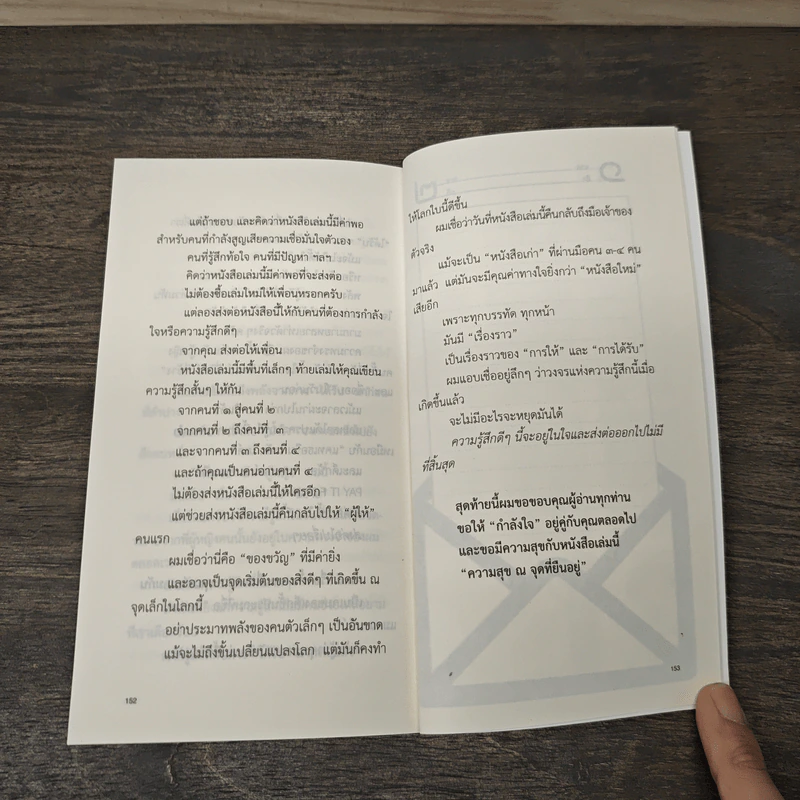 แต่ถ้าชอบ และคิดว่าหนังสือเล่มนี้มีค่าพอ
สำหรับคนที่กำลังสูญเสียความเชื่อมั่นใจตัวเอง
คนที่รู้สึกท้อใจ คนที่มีปัญหา ฯลฯ
คิดว่าหนังสือเล่มนี้มีค่าพอที่จะส่งต่อ
ไม่ต้องซื้อเล่มใหม่ให้เพื่อนหรอกครับ
แต่ลองส่งต่อหนังสือนี้ให้กับคนที่ต้องการกำลัง
ใจหรือความรู้สึกดีๆ
จากคุณ ส่งต่อให้เพื่อน
หนังสือเล่มนี้มีพื้นที่เล็กๆ ท้ายเล่มให้คุณเขียน
ความรู้สึกสั้นๆ ให้กัน
จากคนที่ ๑ สู่คนที่ ๒
จากคนที่ ๒ ถึงคนที่ ๓
และจากคนที่ ๓ ถึงคนที่ ๔
และถ้าคุณเป็นคนอ่านคนที่ ๔
ไม่ต้องส่งหนังสือเล่มนี้ให้ใครอีก
แต่ช่วยส่งหนังสือเล่มนี้คืนกลับไปให้ "ผู้ให้"
คนแรก
ผมเชื่อว่านี่คือ "ของขวัญ" ที่มีค่ายิ่ง
และอาจเป็นจุดเริ่มต้นของสิ่งดีๆ ที่เกิดขึ้น ณ
จุดเล็กในโลกนี้
อย่าประมาทพลังของคนตัวเล็กๆ เป็นอันขาด
แม้จะไม่ถึงขั้นเปลี่ยนแปลงโลก แต่มันก็คงทำ
152
ให้โลกใบนี้ดีขึ้น
ผมเชื่อว่าวันที่หนังสือเล่มนี้คืนกลับถึงมือเจ้าของ
ตัวจริง
แม้จะเป็น "หนังสือเก่า" ที่ผ่านมือคน ๓-๔ คน
มาแล้ว แต่มันจะมีคุณค่าทางใจยิ่งกว่า "หนังสือใหม่"
เสียอีก
เพราะทุกบรรทัด ทุกหน้า
มันมี "เรื่องราว"
เป็นเรื่องราวของ "การให้" และ "การได้รับ"
ผมแอบเชื่ออยู่ลึกๆ ว่าวงจรแห่งความรู้สึกนี้เมื่อ
เกิดขึ้นแล้ว
จะไม่มีอะไรจะหยุดมันได้
ความรู้สึกดีๆ นี้จะอยู่ในใจและส่งต่อออกไปไม่มี
ที่สิ้นสุด
สุดท้ายนี้ผมขอขอบคุณผู้อ่านทุกท่าน
ขอให้ "กำลังใจ" อยู่คู่กับคุณตลอดไป
และขอมีความสุขกับหนังสือเล่มนี้
"ความสุข ณ จุดที่ยืนอยู่"
153